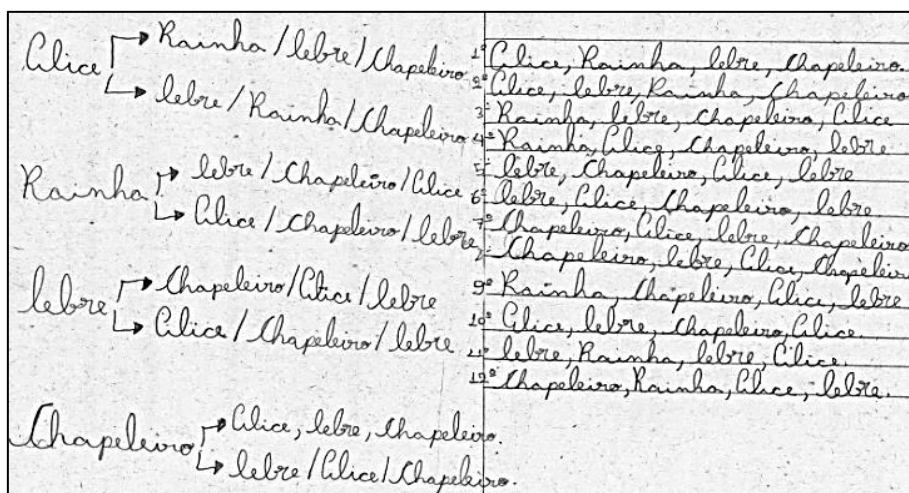 Alice → Rainha / lebre / Chapeleiro
→ lebre / Rainha / Chapeleiro
Rainha → lebre / Chapeleiro / Alice
→ Alice / Chapeleiro / lebre
lebre → Chapeleiro / Alice / lebre
→ Alice / Chapeleiro / lebre
Chapeleiro → Alice, lebre, Chapeleiro.
→ lebre / Alice / Chapeleiro.
1º Alice, Rainha, lebre, Chapeleiro.
2º Alice, lebre, Rainha, Chapeleiro
3º Rainha, lebre, Chapeleiro, Alice
4º Rainha, Alice, Chapeleiro, lebre
5º lebre, Chapeleiro, Alice, lebre
6º lebre, Alice, Chapeleiro, lebre
7º Chapeleiro, Alice, lebre, Chapeleiro
Chapeleiro, lebre, Alice, Chapeleiro
9º Rainha, Chapeleiro, Alice, lebre
10º Alice, lebre, Chapeleiro, Alice
11º lebre, Rainha, lebre, Alice.
12º Chapeleiro, Rainha, Alice, lebre.